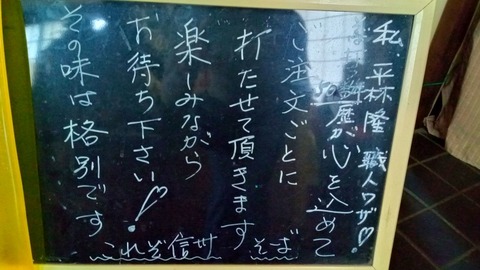 私、平林隆 職人ワザ♡!
歴が心を込めて
ご注文ごとに
打たせて頂きます
楽しみながら
お待ち下さい!
その味は格別です
これぞ信州そば